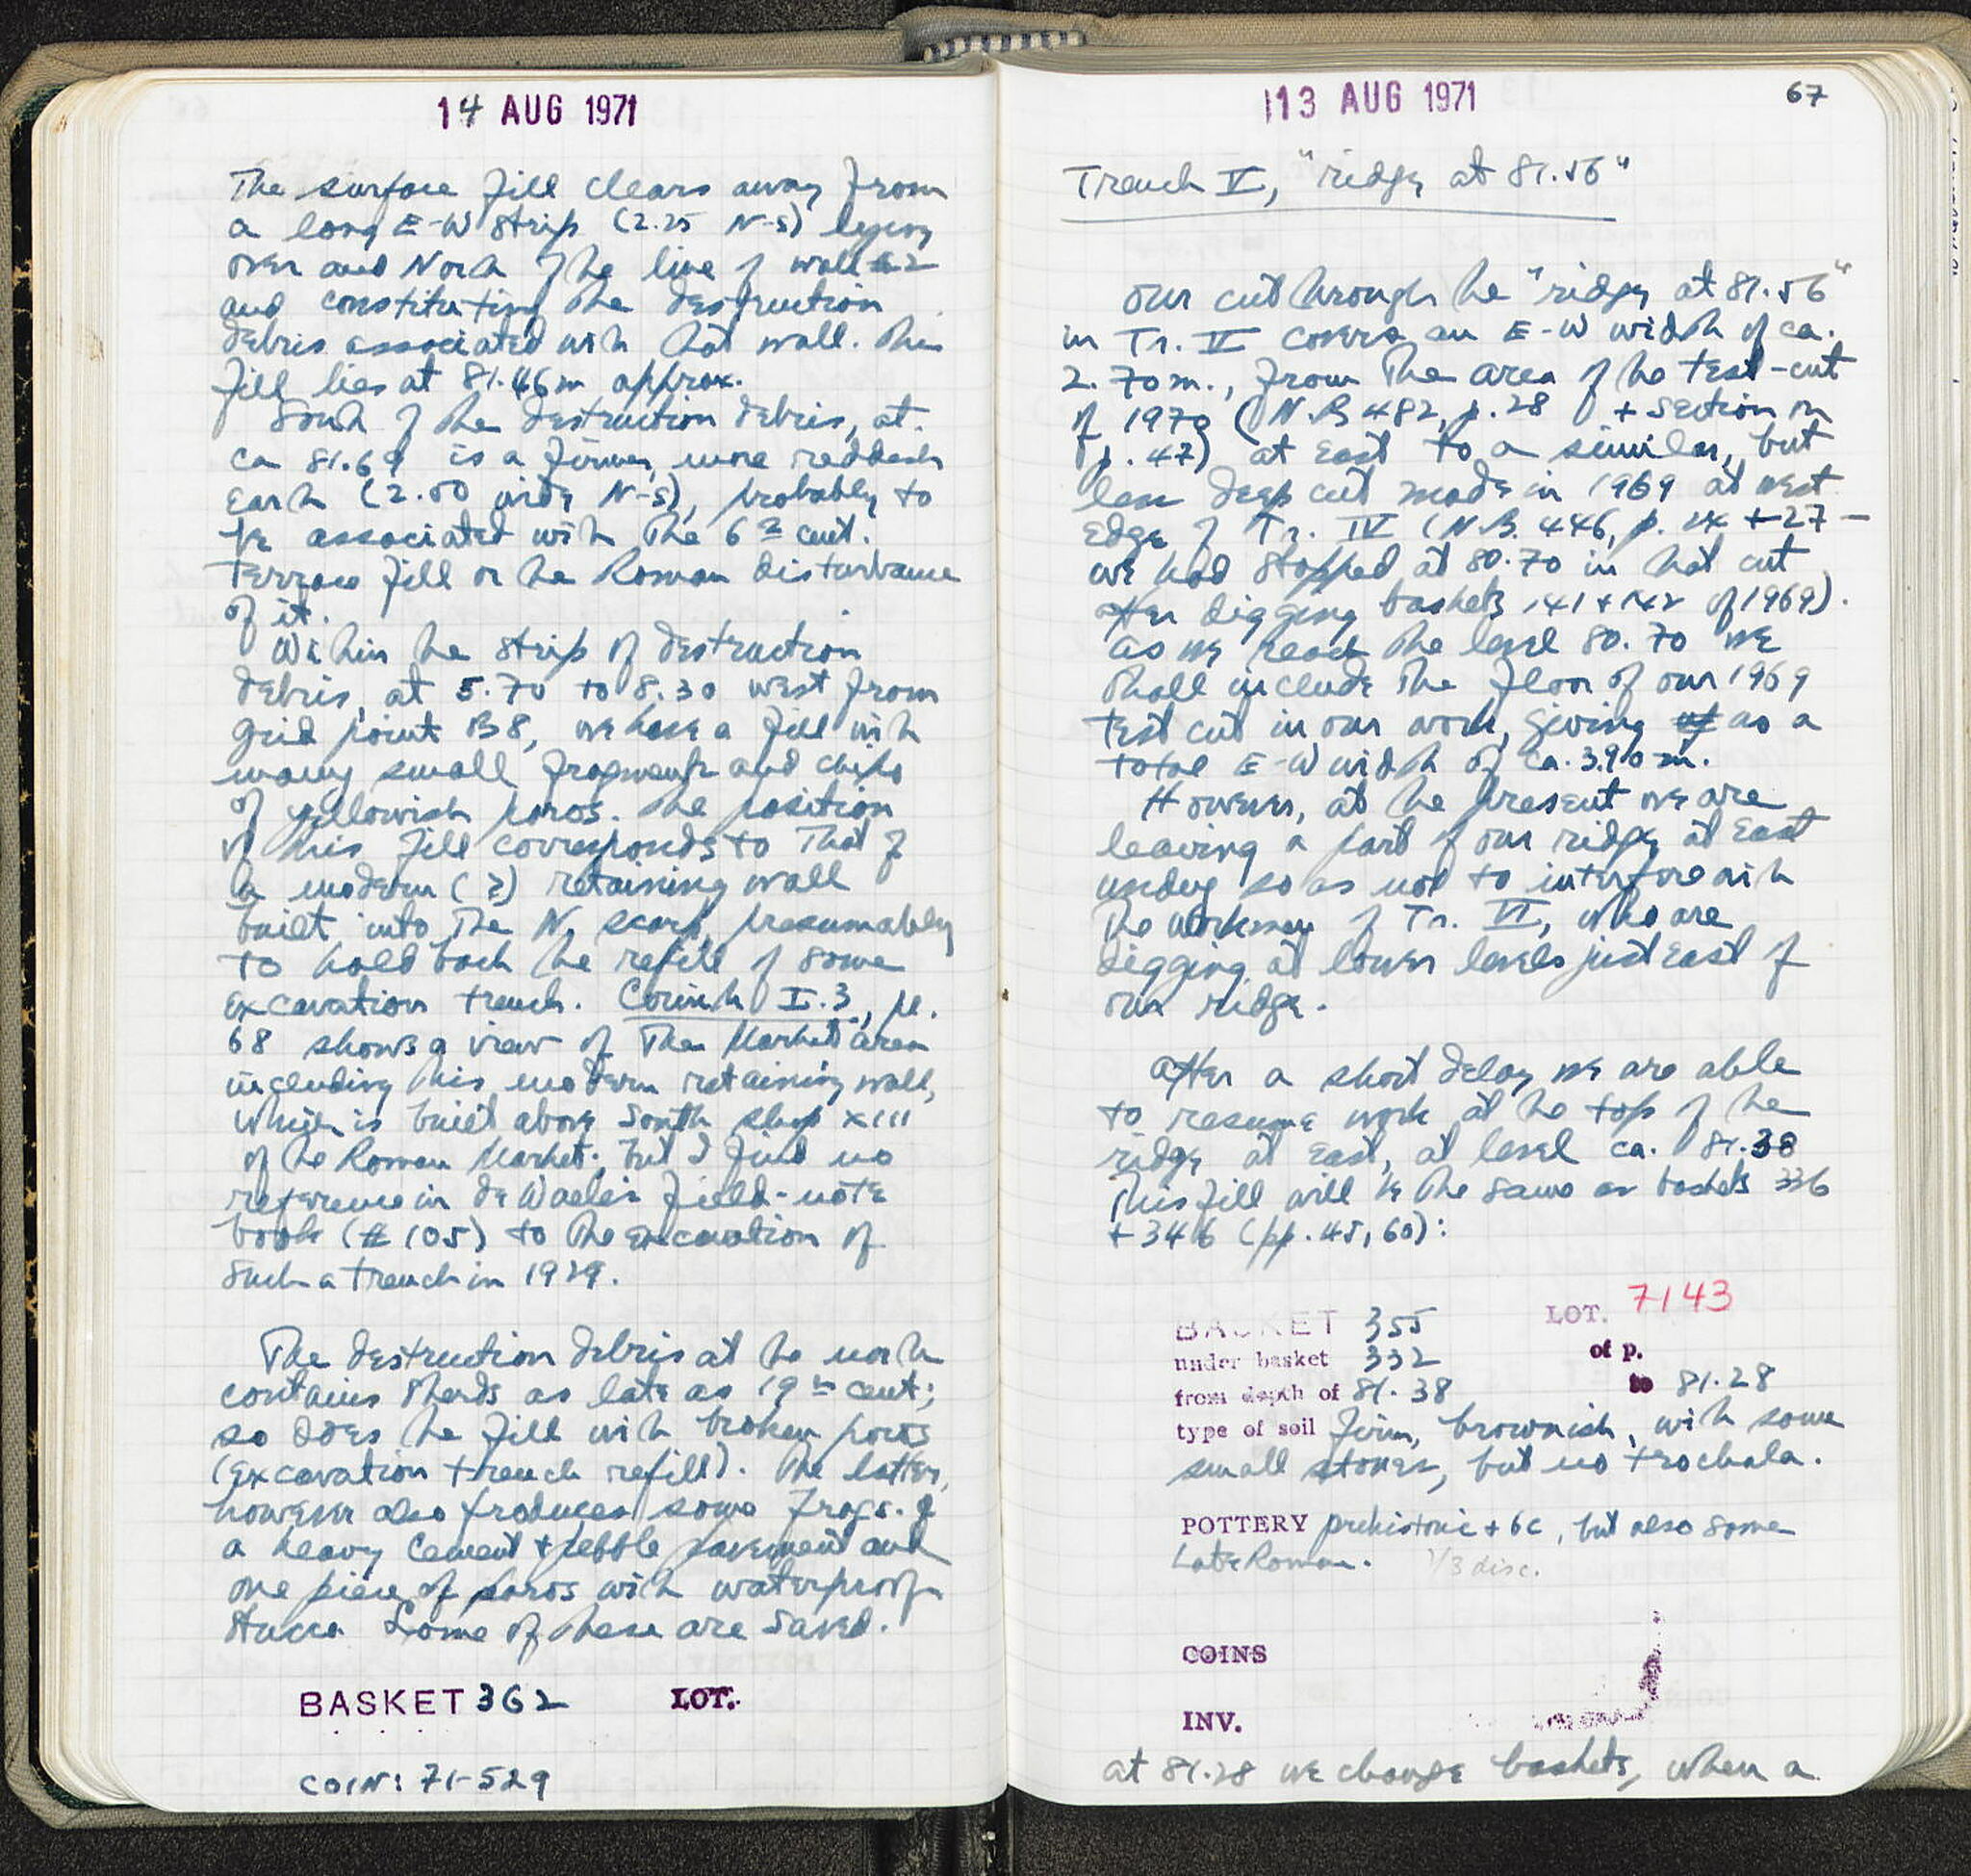 14 AUG 1971
The surface fill clears away from
a long E-W strip (2.25 N-S) lying
over and North of the line of wall 2
and constituting the destruction
debris associated with that wall. This
fill lies at 81.46m approx.
South of the destruction debris, at
ca 81.69 is a firmer, more reddish
earth (2.00 wide N-S), probably to
be associated with the 6th cent.
terrace fill or the Roman disturbance
of it.
Within the strip of destruction
debris, at 5.70 to 8.30 west from
grid point B8, we have a fill with
many small fragments and chips
of yellowish poros. The position
of this fill corresponds to that of
a modern (?) retaining wall
built into the N. scarp, presumably
to hold back the refill of some
excavation trench. Corinth I.3, pl.
68 shows a view of the Market area
including this modern retaining wall,
which is built above South shop XIII
of the Roman Market; but I find no
reference in de Waele's field-note
book (# 105) to the excavation of
such a trench in 1929.
The destruction debris at the north
contains sherds as late as 19th cent;
so does the fill with broken poros
(excavation trench refill). The latter,
however also produces some frags. of
a heavy cement + pebble pavement and
one piece of poros with waterproof
stucco. Some of these are saved.
BASKET 362 LOT.
COIN: 71-529
13 AUG 1971 67
Trench V, "ridge at 81.56"
Our cut through the "ridge at 81.56"
in Tr. V covers an E-W width of ca.
2.70m., from the area of the test-cut
of 1970 (N.B 482, p. 28 + section on
p. 47) at East to a similar, but
less deep cut made in 1969 at west
edge of Tr. IV (N.B. 446, p. + 27 –
we had stopped at 80.70 in that cut
after digging baskets 141 + 142 of 1969).
As we reach the level 80.70 we
shall include the floor of our 1969
test cut in our work, giving us a
total E-W width of ca. 3.90 m.
However, at the present we are
leaving a part of our ridge at East
undug so as not to interfere with
the workmen of Tr. VI, who are
digging at lower levels just east of
our ridge.
After a short delay we are able
to resume work at the top of the
ridge at East, at level ca. 81.38
This fill will be the same as baskets 336
+ 346 (pp. 45, 60):
BASKET 355 LOT. 7143
under basket 332 of p.
from depth of 81.38 to 81.28
type of soil firm, brownish, with some
small stones, but no trochala.
POTTERY prehistoric + 6c, but also some
Late Roman. 1/3 disc.
COINS
INV.
at 81.28 we change baskets, when a